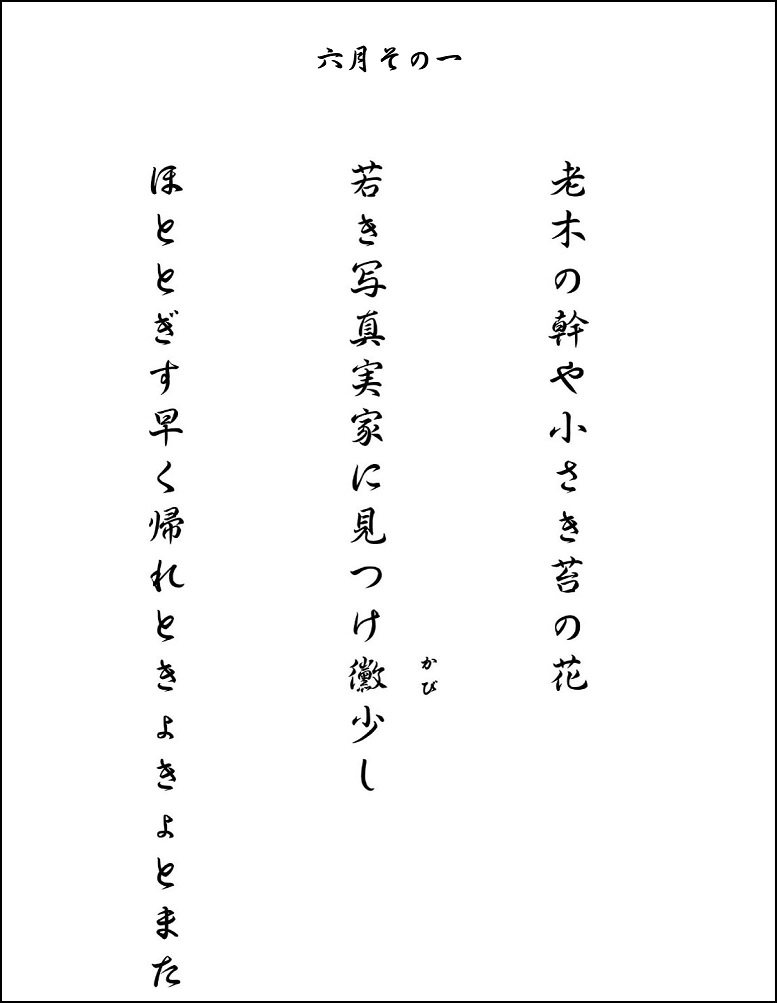 六月その一
老木の幹や小さき苔の花
若き写真実家に見つけ黴少し
かび
ほととぎす早く帰れときょきょとまた